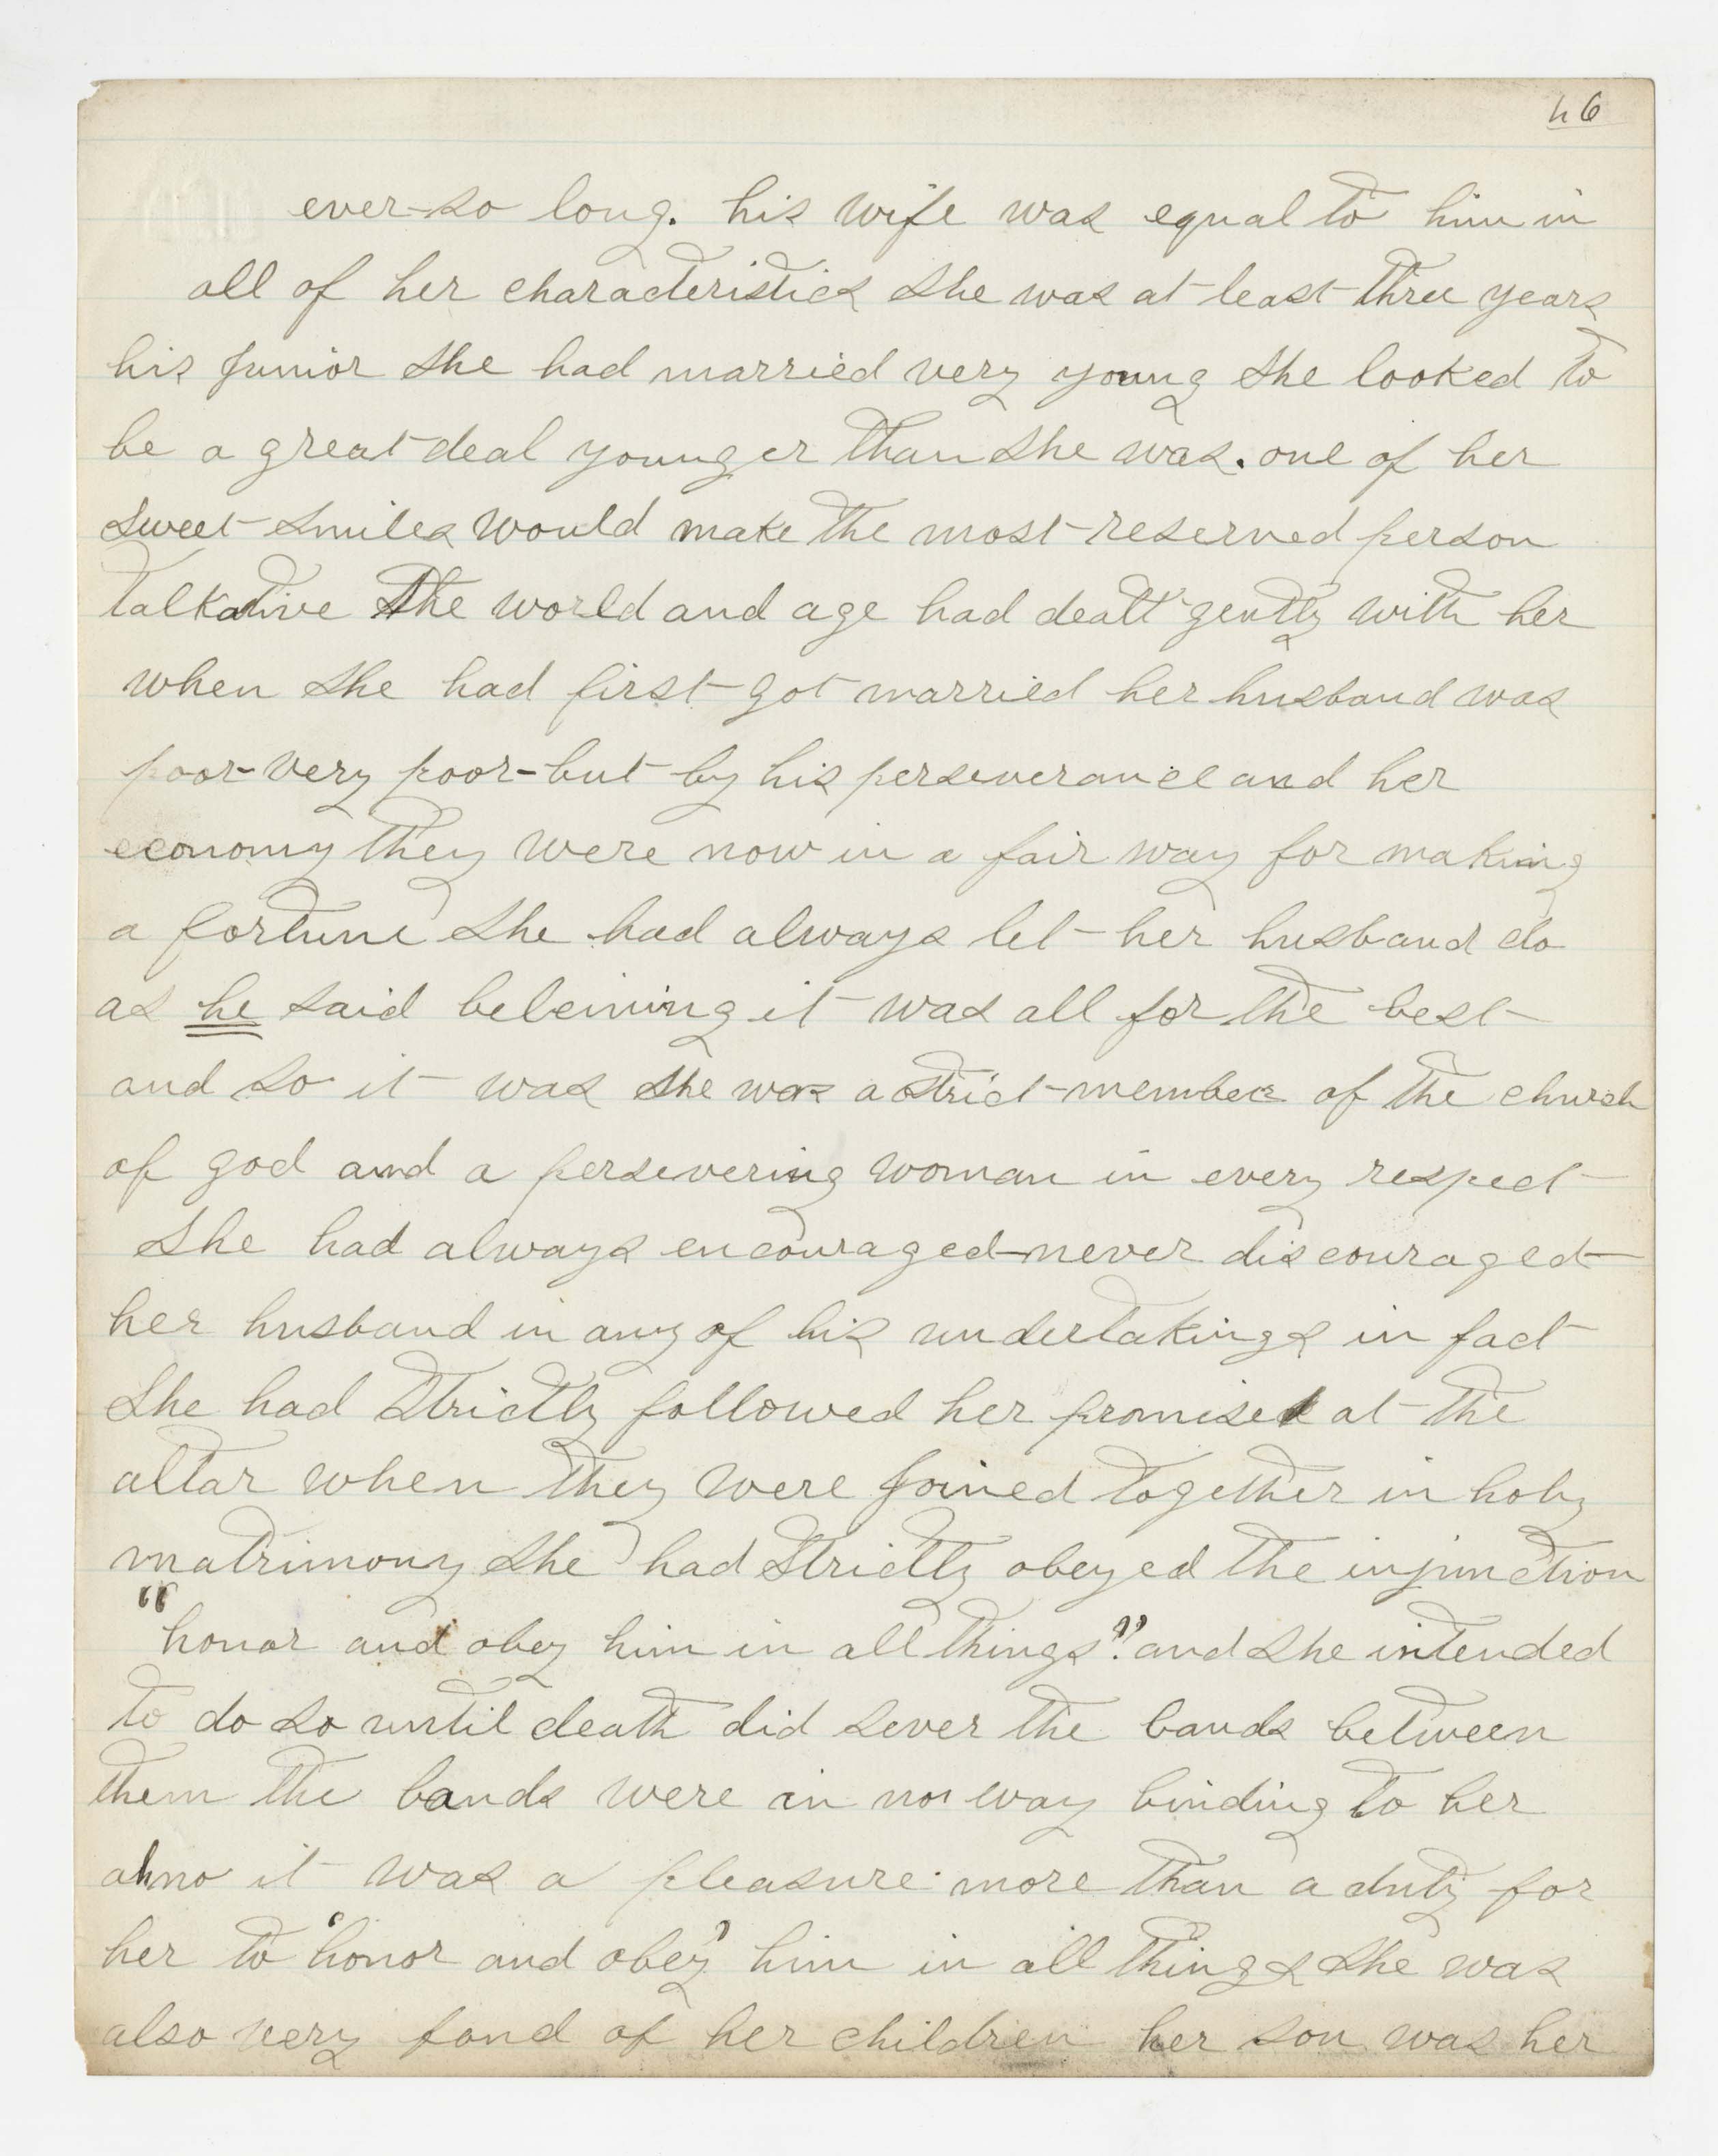 46
ever-so long. his wife was equal to him in
all of her characteristics she was at least three years
his junior she had married very young she looked to
be a great deal younger than she was. one of her
sweet smiles would make the most reserved person
talkative The world and age had dealt gently with her
when she had first got married her husband was
poor-very poor-but by his perseverance and her
economy they were now in a fair way for making
a fortune she had always let her husband do
as he said beleiving it was all for the best
and so it was she was a strict member of the church
of god and a persevering woman in every respect
She had always encouraged-never discouraged-
her husband in any of his undertakings in fact
She had Strictly followed her promise at the
altar when they were joined together in holy
matrimony she had strictly obeyed the injunction
"honor and obey him in all things". and she intended
to do so until death did sever the bands between
them the bands were in no way binding to her
ah no it was a pleasure more than a duty for
her to 'honor and obey' him in all things she was
also very fond of her children her son was her